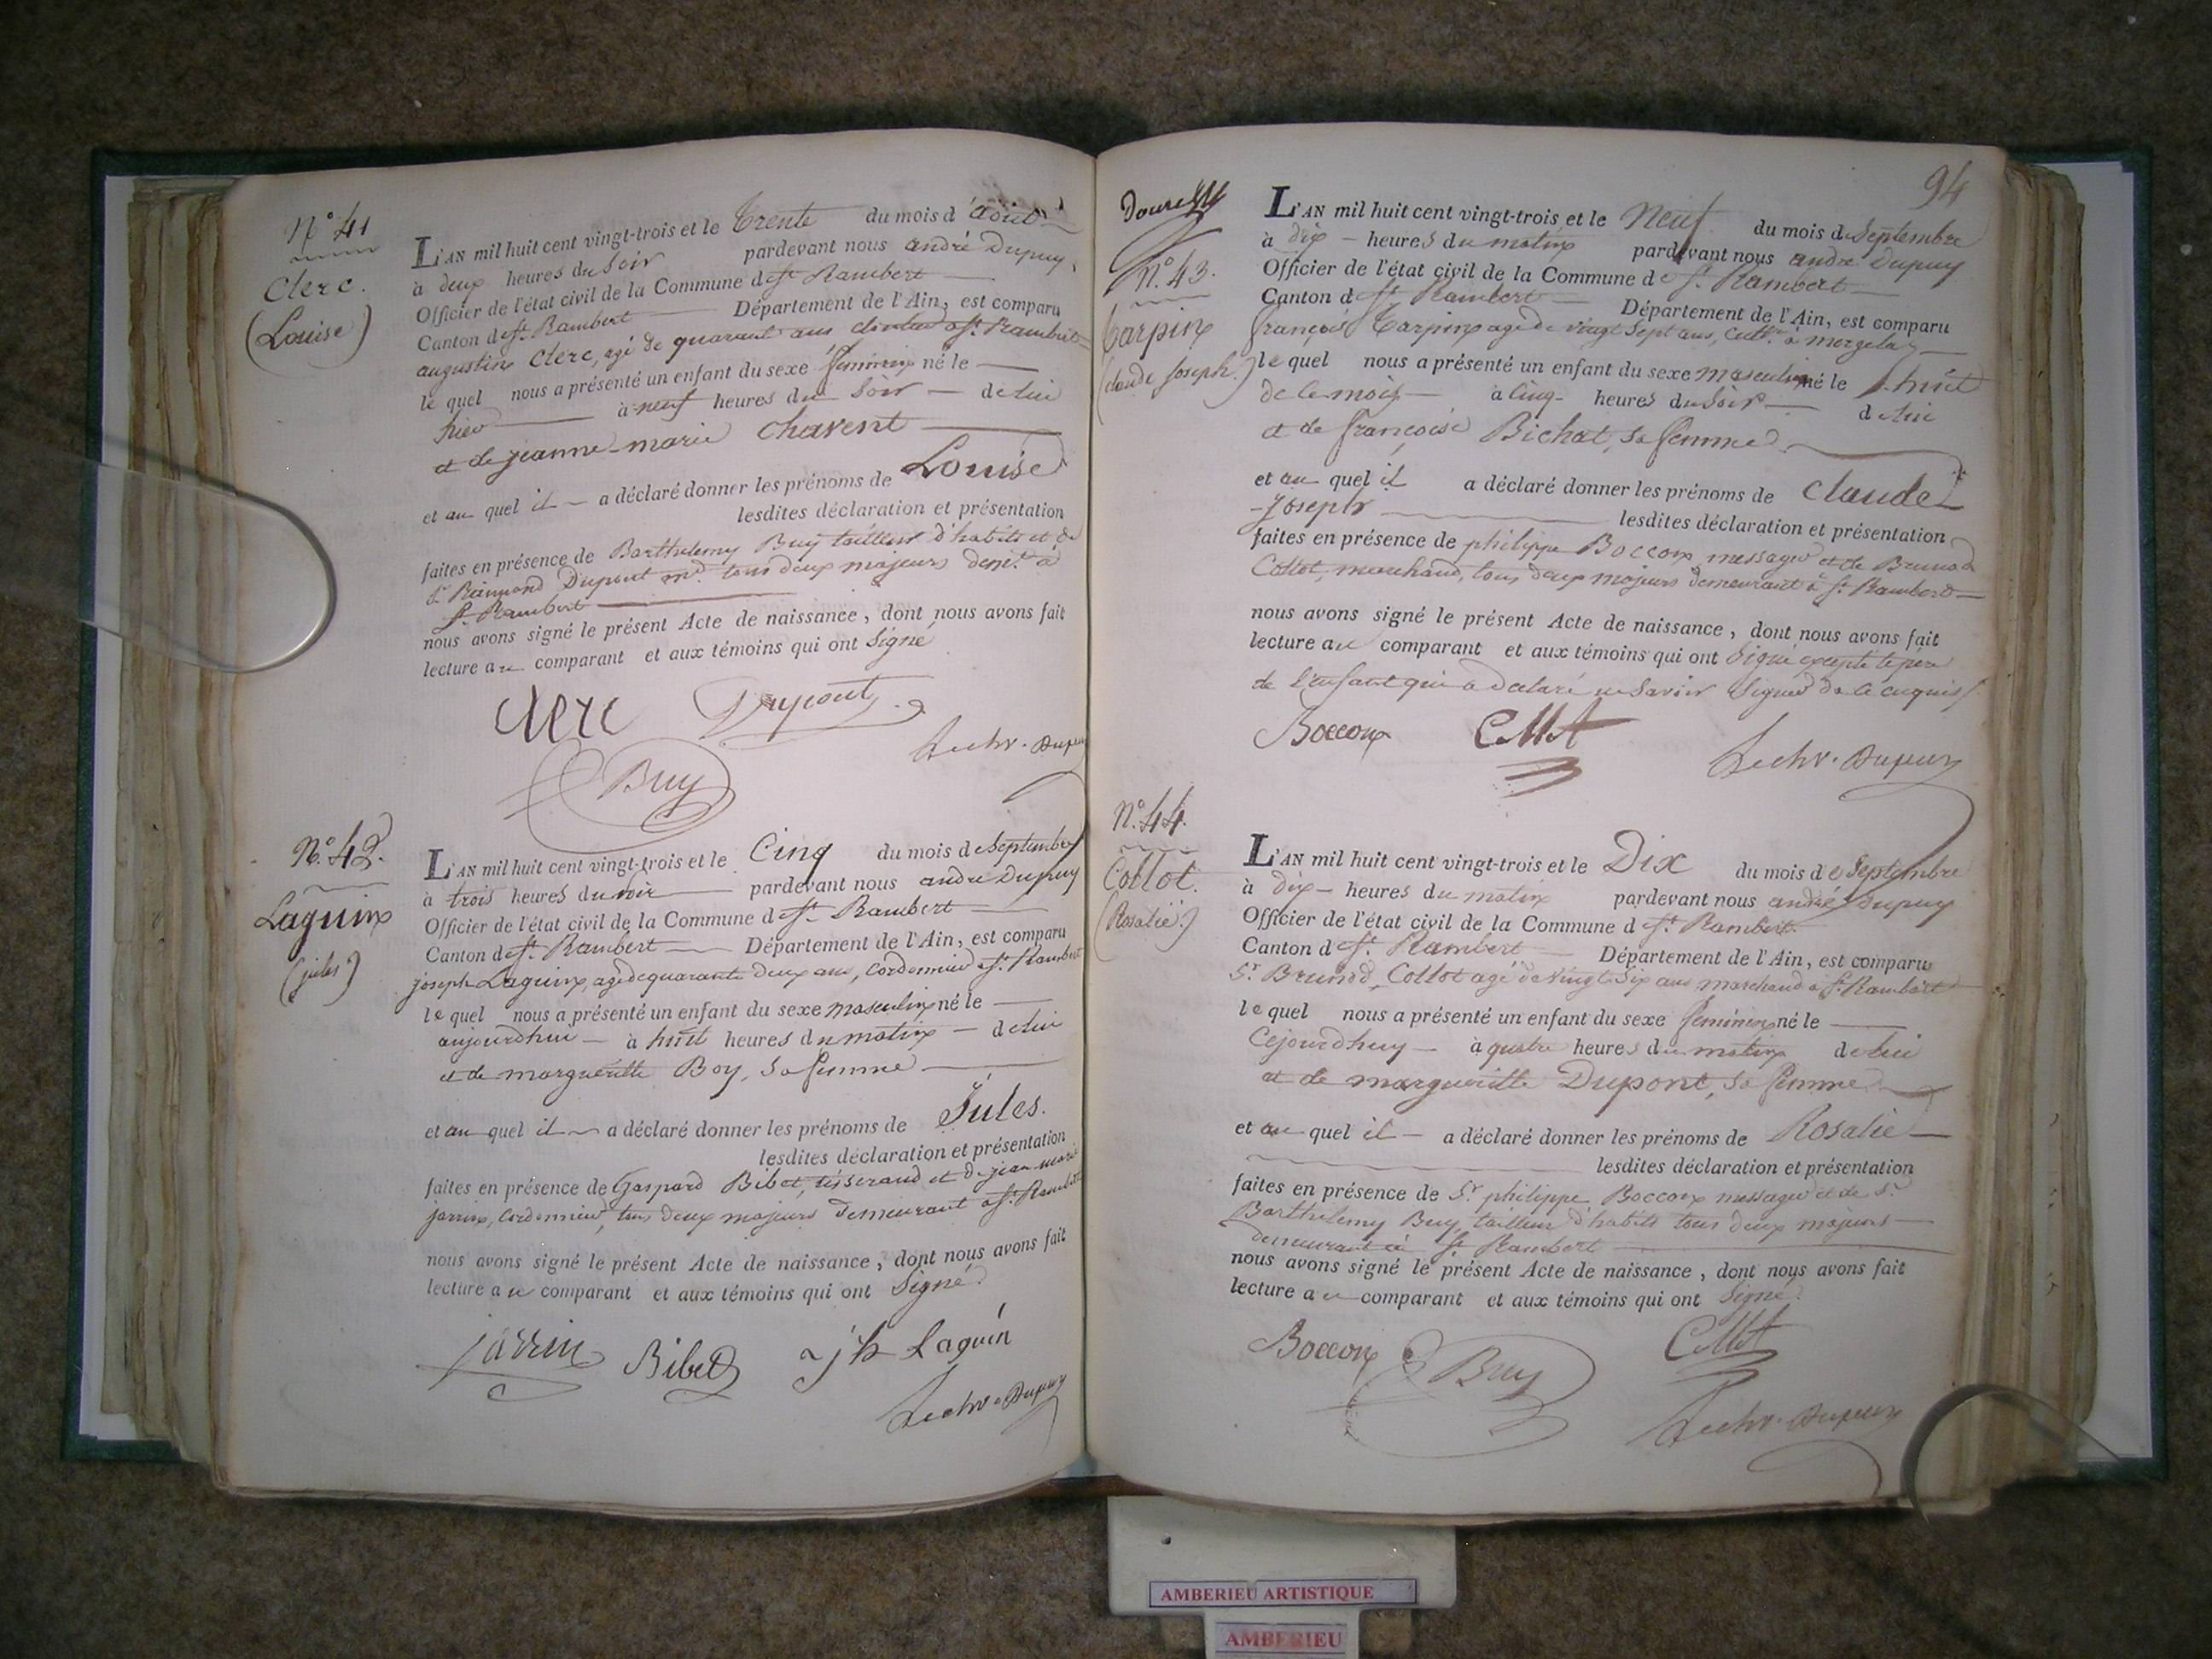 N° 41
Clerc.
(Louise)
L'AN mil huit cent vingt-trois et le Trente du mois d'août
à deux heures du Soir pardevant nous andré Dupuy,
Officier de l'état civil de la Commune de St. Rambert
Canton de St. Rambert Département de l'Ain, est comparu
augustin Clerc, agé de quarante ans St. Rambert
le quel nous a présenté un enfant du sexe feminin né le
hier à neuf heures du Soir de lui
et de jeanne-marie Charent
et au quel il a déclaré donner les prénoms de Louise
lesdites déclaration et présentation
faites en présence de Barthelemy Buy tailleur d'habits et de
Sr. Raimond Dupont md. tous deux majeurs demt. à
St. Rambert
nous avons signé le présent Acte de naissance, dont nous avons fait
lecture au comparant et aux témoins qui ont Signé
Clerc Dupont
Buy
Dupuy
N° 42.
Laguin
(jules)
L'AN mil huit cent vingt-trois et le Cinq du mois de Septembre
à trois heures du soir pardevant nous andré Dupuy
Officier de l'état civil de la Commune de St. Rambert
Canton de St. Rambert Département de l'Ain, est comparu
joseph Laguin, agé de quarante deux ans, Cordonnier à St. Rambert
le quel nous a présenté un enfant du sexe masculin né le
aujourdhui à huit heures du matin de lui
et de margueritte Boy, Sa femme
et au quel il a déclaré donner les prénoms de Jules.
lesdites déclaration et présentation
faites en présence de Gaspard Bibet, tisserand et de jean marie
jarrin, Cordonnier, tous deux majeurs demeurant à St. Rambert
nous avons signé le présent Acte de naissance, dont nous avons fait
lecture au comparant et aux témoins qui ont Signé
jarrin Bibet jh Laguin
Dupuy
94
N° 43.
Tarpin
(claude joseph.)
L'AN mil huit cent vingt-trois et le Neuf du mois de Septembre
à dix heures du matin pardevant nous andré Dupuy
Officier de l'état civil de la Commune de St. Rambert
Canton de St. Rambert Département de l'Ain, est comparu
françois Tarpin agé de vingt Sept ans, Cultr. à morgelas
le quel nous a présenté un enfant du sexe masculin né le huit
de ce mois à Cinq heures du Soir de lui
et de françoise Bichat, Sa femme
et au quel il a déclaré donner les prénoms de Claude
-Joseph lesdites déclaration et présentation
faites en présence de philippe Boccon messager et de Brunod
Collot, marchand, tous deux majeurs demeurant à St. Rambert
nous avons signé le présent Acte de naissance, dont nous avons fait
lecture au comparant et aux témoins qui ont Signé excepté le père
de l'enfant qui a déclaré ne Savoir Signer de ce enquis
Boccon Collot
Dupuy
N° 44.
Collot.
(Rosalie.)
L'AN mil huit cent vingt-trois et le Dix du mois de Septembre
à dix heures du matin pardevant nous andré Dupuy
Officier de l'état civil de la Commune de St. Rambert
Canton de St. Rambert Département de l'Ain, est comparu
Sr. Brunod, Collot agé de vingt Six ans marchand à St. Rambert
le quel nous a présenté un enfant du sexe féminin né le
Cejourdhuy à quatre heures du matin de lui
et de margueritte Dupont, Sa femme
et au quel il a déclaré donner les prénoms de Rosalie
lesdites déclaration et présentation
faites en présence de Sr. philippe Boccon messager et de Sr.
Barthelemy Buy, tailleur d'habits tous deux majeurs
demeurant à St. Rambert
nous avons signé le présent Acte de naissance, dont nous avons fait
lecture au comparant et aux témoins qui ont Signé
Boccon Buy Collot
Dupuy
AMBERIEU ARTISTIQUE
AMBERIEU